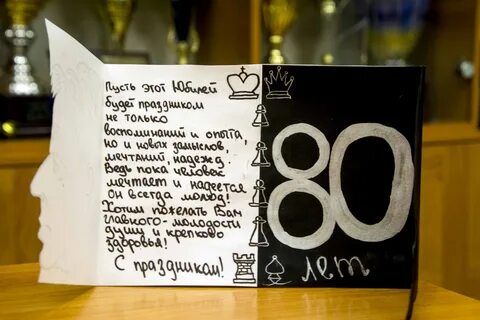 Пусть этот Юбилей
будет праздником
не только
воспоминаний и опыта,
но и новых замыслов,
мечтаний, надежд.
Ведь пока человек
мечтает и надеется
он всегда молод!
Хотим пожелать Вам
главного - молодости
души и крепкого
здоровья!
С праздником!
80
лет